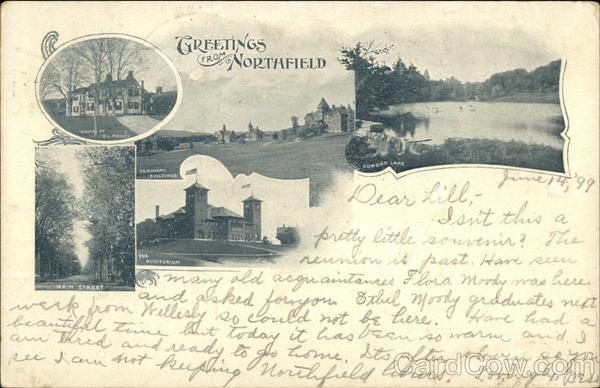 GREETINGS
FROM
NORTHFIELD
HOME OF
SEMINARY
BUILDINGS
GORDON LAKE
THE
AUDITORIUM
MAIN STREET
June 14, '99
Dear Lill,-
Isn't this a
pretty little souvenir? The
reunion is past. Have seen
many old acquaintances Flora Moody was here
and asked for you. Ethel Moody graduates next
week from Wellesley so could not be here. Have had a
beautiful time but today it has been so warm and I
am tired and ready to go home. Its
see I am not keeping Northfield hours.
CardCow.com